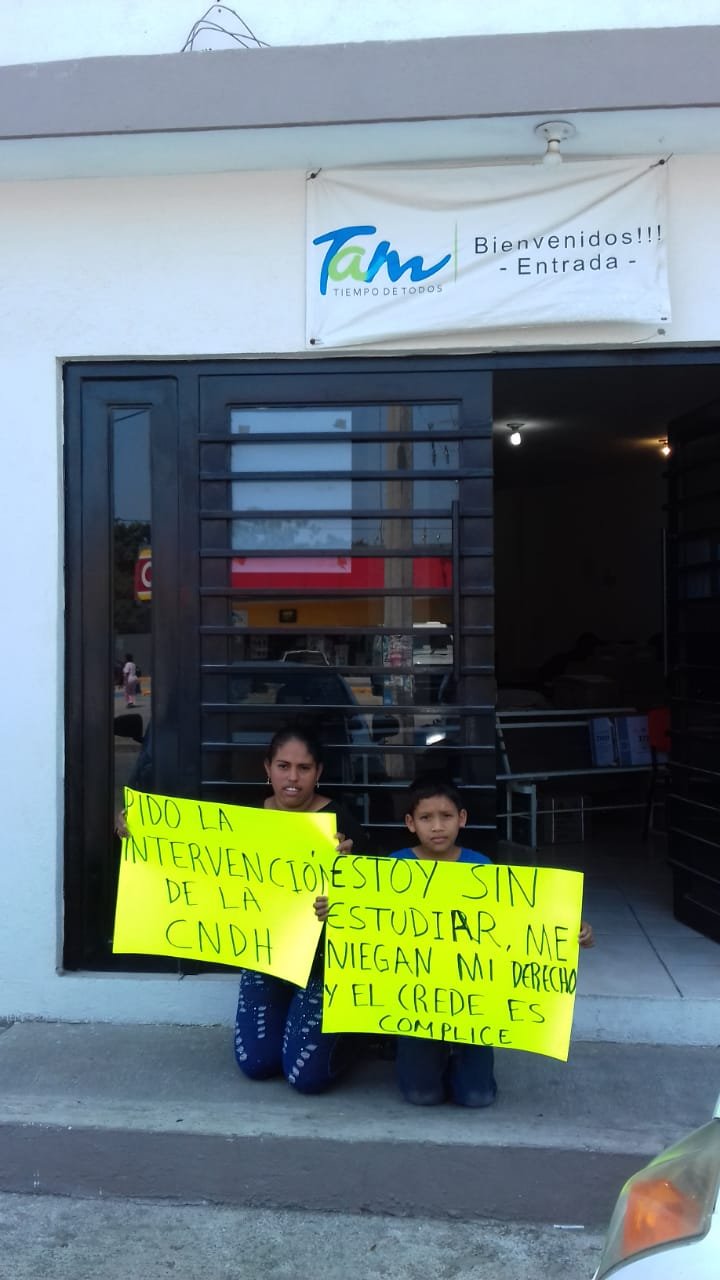 Tam
TIEMPO DE TODOS
Bienvenidos!!!
- Entrada -
PIDO LA
INTERVENCIÓN
DE LA
CNDH
ESTOY SIN
ESTUDIAR, ME
NIEGAN MI DERECHO
Y EL CREDE ES
COMPLICE